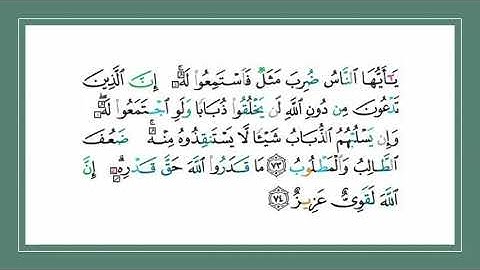 يَٰٓأَيُّهَا ٱلنَّاسُ ضُرِبَ مَثَلٞ فَٱسۡتَمِعُواْ لَهُۥٓۚ إِنَّ ٱلَّذِينَ
تَدۡعُونَ مِن دُونِ ٱللَّهِ لَن يَخۡلُقُواْ ذُبَابٗا وَلَوِ ٱجۡتَمَعُواْ لَهُۥۖ
وَإِن يَسۡلُبۡهُمُ ٱلذُّبَابُ شَيۡـٔٗا لَّا يَسۡتَنقِذُوهُ مِنۡهُۚ ضَعُفَ
ٱلطَّالِبُ وَٱلۡمَطۡلُوبُ ٧٣ مَا قَدَرُواْ ٱللَّهَ حَقَّ قَدۡرِهِۦٓۚ إِنَّ
ٱللَّهَ لَقَوِيٌّ عَزِيزٌ ٧٤